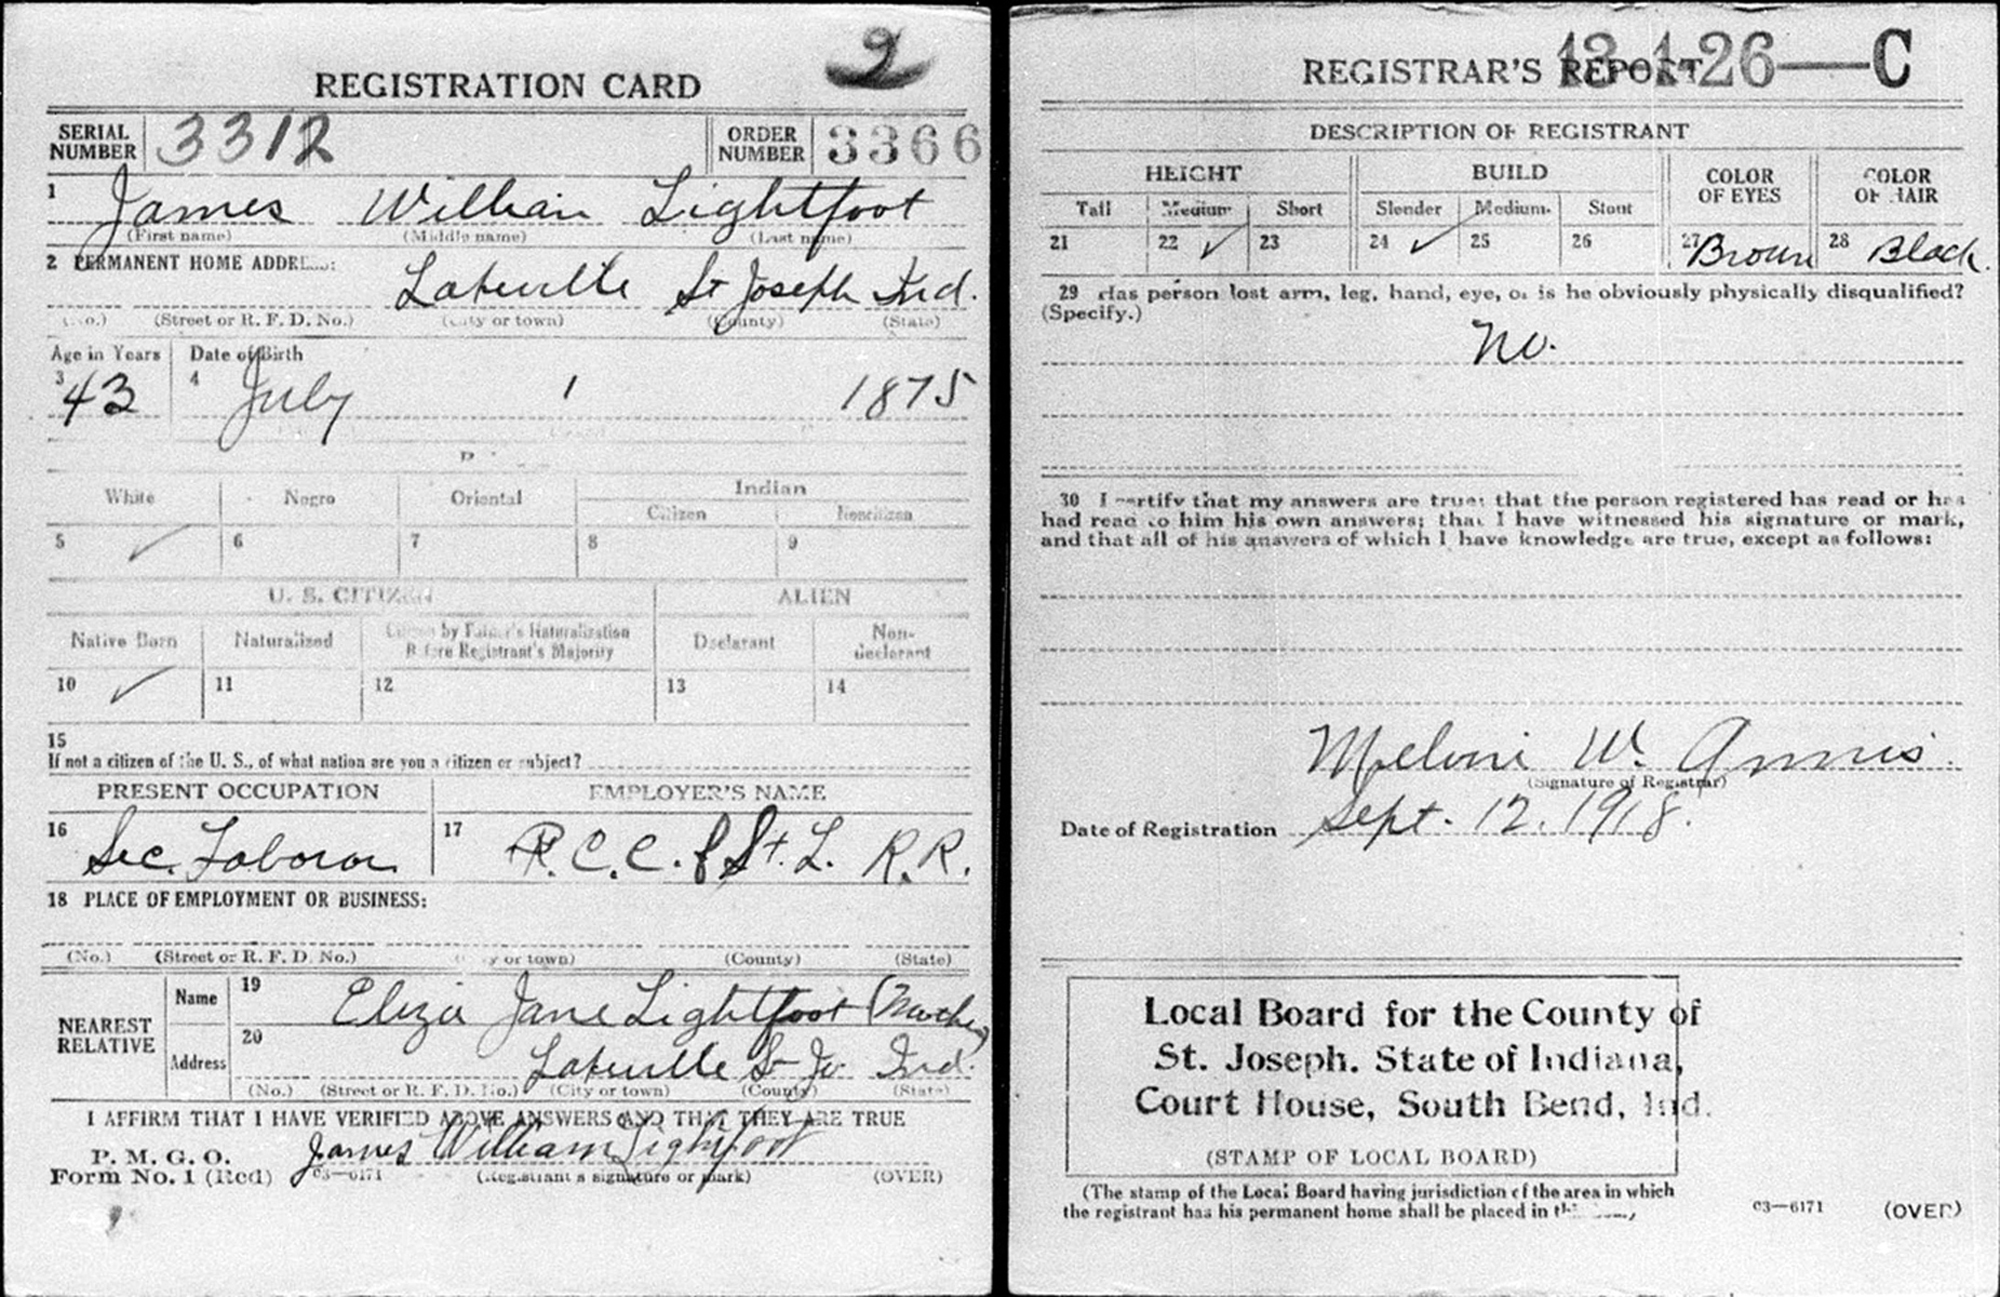 2
REGISTRATION CARD
SERIAL NUMBER 3312 ORDER NUMBER 3366
1 James William Lightfoot
(First name) (Middle name) (Last name)
2 PERMANENT HOME ADDRESS:
Lakeville St Joseph Ind.
(No.) (Street or R. F. D. No.) (City or town) (County) (State)
Age in Years Date of Birth
3 43 4 July 1 1875
White Negro Oriental Indian
Citizen Noncitizen
5 ✓ 6 7 8 9
U. S. CITIZEN ALIEN
Native Born Naturalized Citizen by Father's Naturalization Before Registrant's Majority Declarant Non-declarant
10 ✓ 11 12 13 14
15
If not a citizen of the U. S., of what nation are you a citizen or subject?
PRESENT OCCUPATION EMPLOYER'S NAME
16 Sec. Laboror 17 P. C. C. & St. L. R.R.
18 PLACE OF EMPLOYMENT OR BUSINESS:
(No.) (Street or R. F. D. No.) (City or town) (County) (State)
NEAREST RELATIVE Name 19 Eliza Jane Lightfoot (Mother)
Address 20 Lakeville St Jo Ind.
(No.) (Street or R. F. D. No.) (City or town) (County) (State)
I AFFIRM THAT I HAVE VERIFIED ABOVE ANSWERS AND THAT THEY ARE TRUE
P. M. G. O.
Form No. 1 (Red) James William Lightfoot
03—6171 (Registrant's signature or mark) (OVER)
REGISTRAR'S REPORT 13-1-26—C
DESCRIPTION OF REGISTRANT
HEIGHT BUILD COLOR OF EYES COLOR OF HAIR
Tall Medium Short Slender Medium Stout
21 22 ✓ 23 24 ✓ 25 26 27 Brown 28 Black.
29 Has person lost arm, leg, hand, eye, or is he obviously physically disqualified?
(Specify.)
No.
30 I certify that my answers are true; that the person registered has read or has
had read to him his own answers; that I have witnessed his signature or mark,
and that all of his answers of which I have knowledge are true, except as follows:
W. Annis
(Signature of Registrar)
Date of Registration Sept. 12. 1918.
Local Board for the County of
St. Joseph. State of Indiana,
Court House, South Bend, Ind.
(STAMP OF LOCAL BOARD)
(The stamp of the Local Board having jurisdiction of the area in which
the registrant has his permanent home shall be placed in this
03—6171 (OVER)